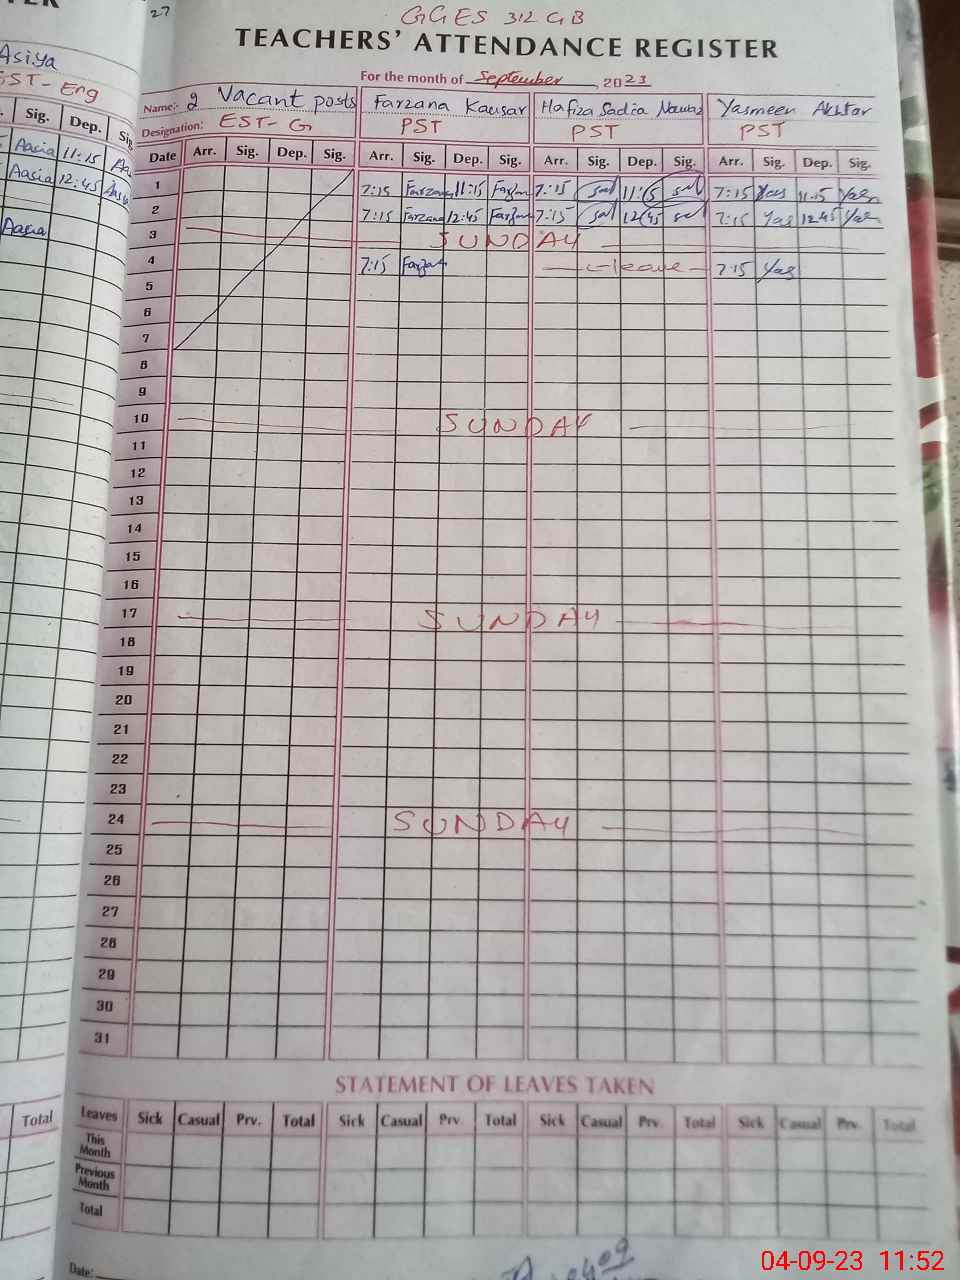 27
GGES 312 GB
TEACHERS' ATTENDANCE REGISTER
For the month of September, 2023
Name:- 2 Vacant posts Farzana Kausar Hafiza Sadia Nawaz Yasmeen Akhtar
Designation: EST-G PST PST PST
Date Arr. Sig. Dep. Sig. Arr. Sig. Dep. Sig. Arr. Sig. Dep. Sig. Arr. Sig. Dep. Sig.
1 7:15 Farzana 11:15 Farzana 7:15 11:15 7:15 Yas 11:15 Yas
2 7:15 Farzana 12:45 Farzana 7:15 12:45 7:15 Yas 12:45 Yas
3 SUNDAY
4 7:15 Farzana leave 7:15 Yas
5
6
7
8
9
10 SUNDAY
11
12
13
14
15
16
17 SUNDAY
18
19
20
21
22
23
24 SUNDAY
25
26
27
28
29
30
31
STATEMENT OF LEAVES TAKEN
Leaves Sick Casual Prv. Total Sick Casual Prv. Total Sick Casual Prv. Total Sick Casual Prv. Total
This Month
Previous Month
Total
Date:
04-09-23 11:52
Asiya
EST-Eng
Sig. Dep. Sig.
Aasia 11:15
Aasia 12:45
Aasia
Total